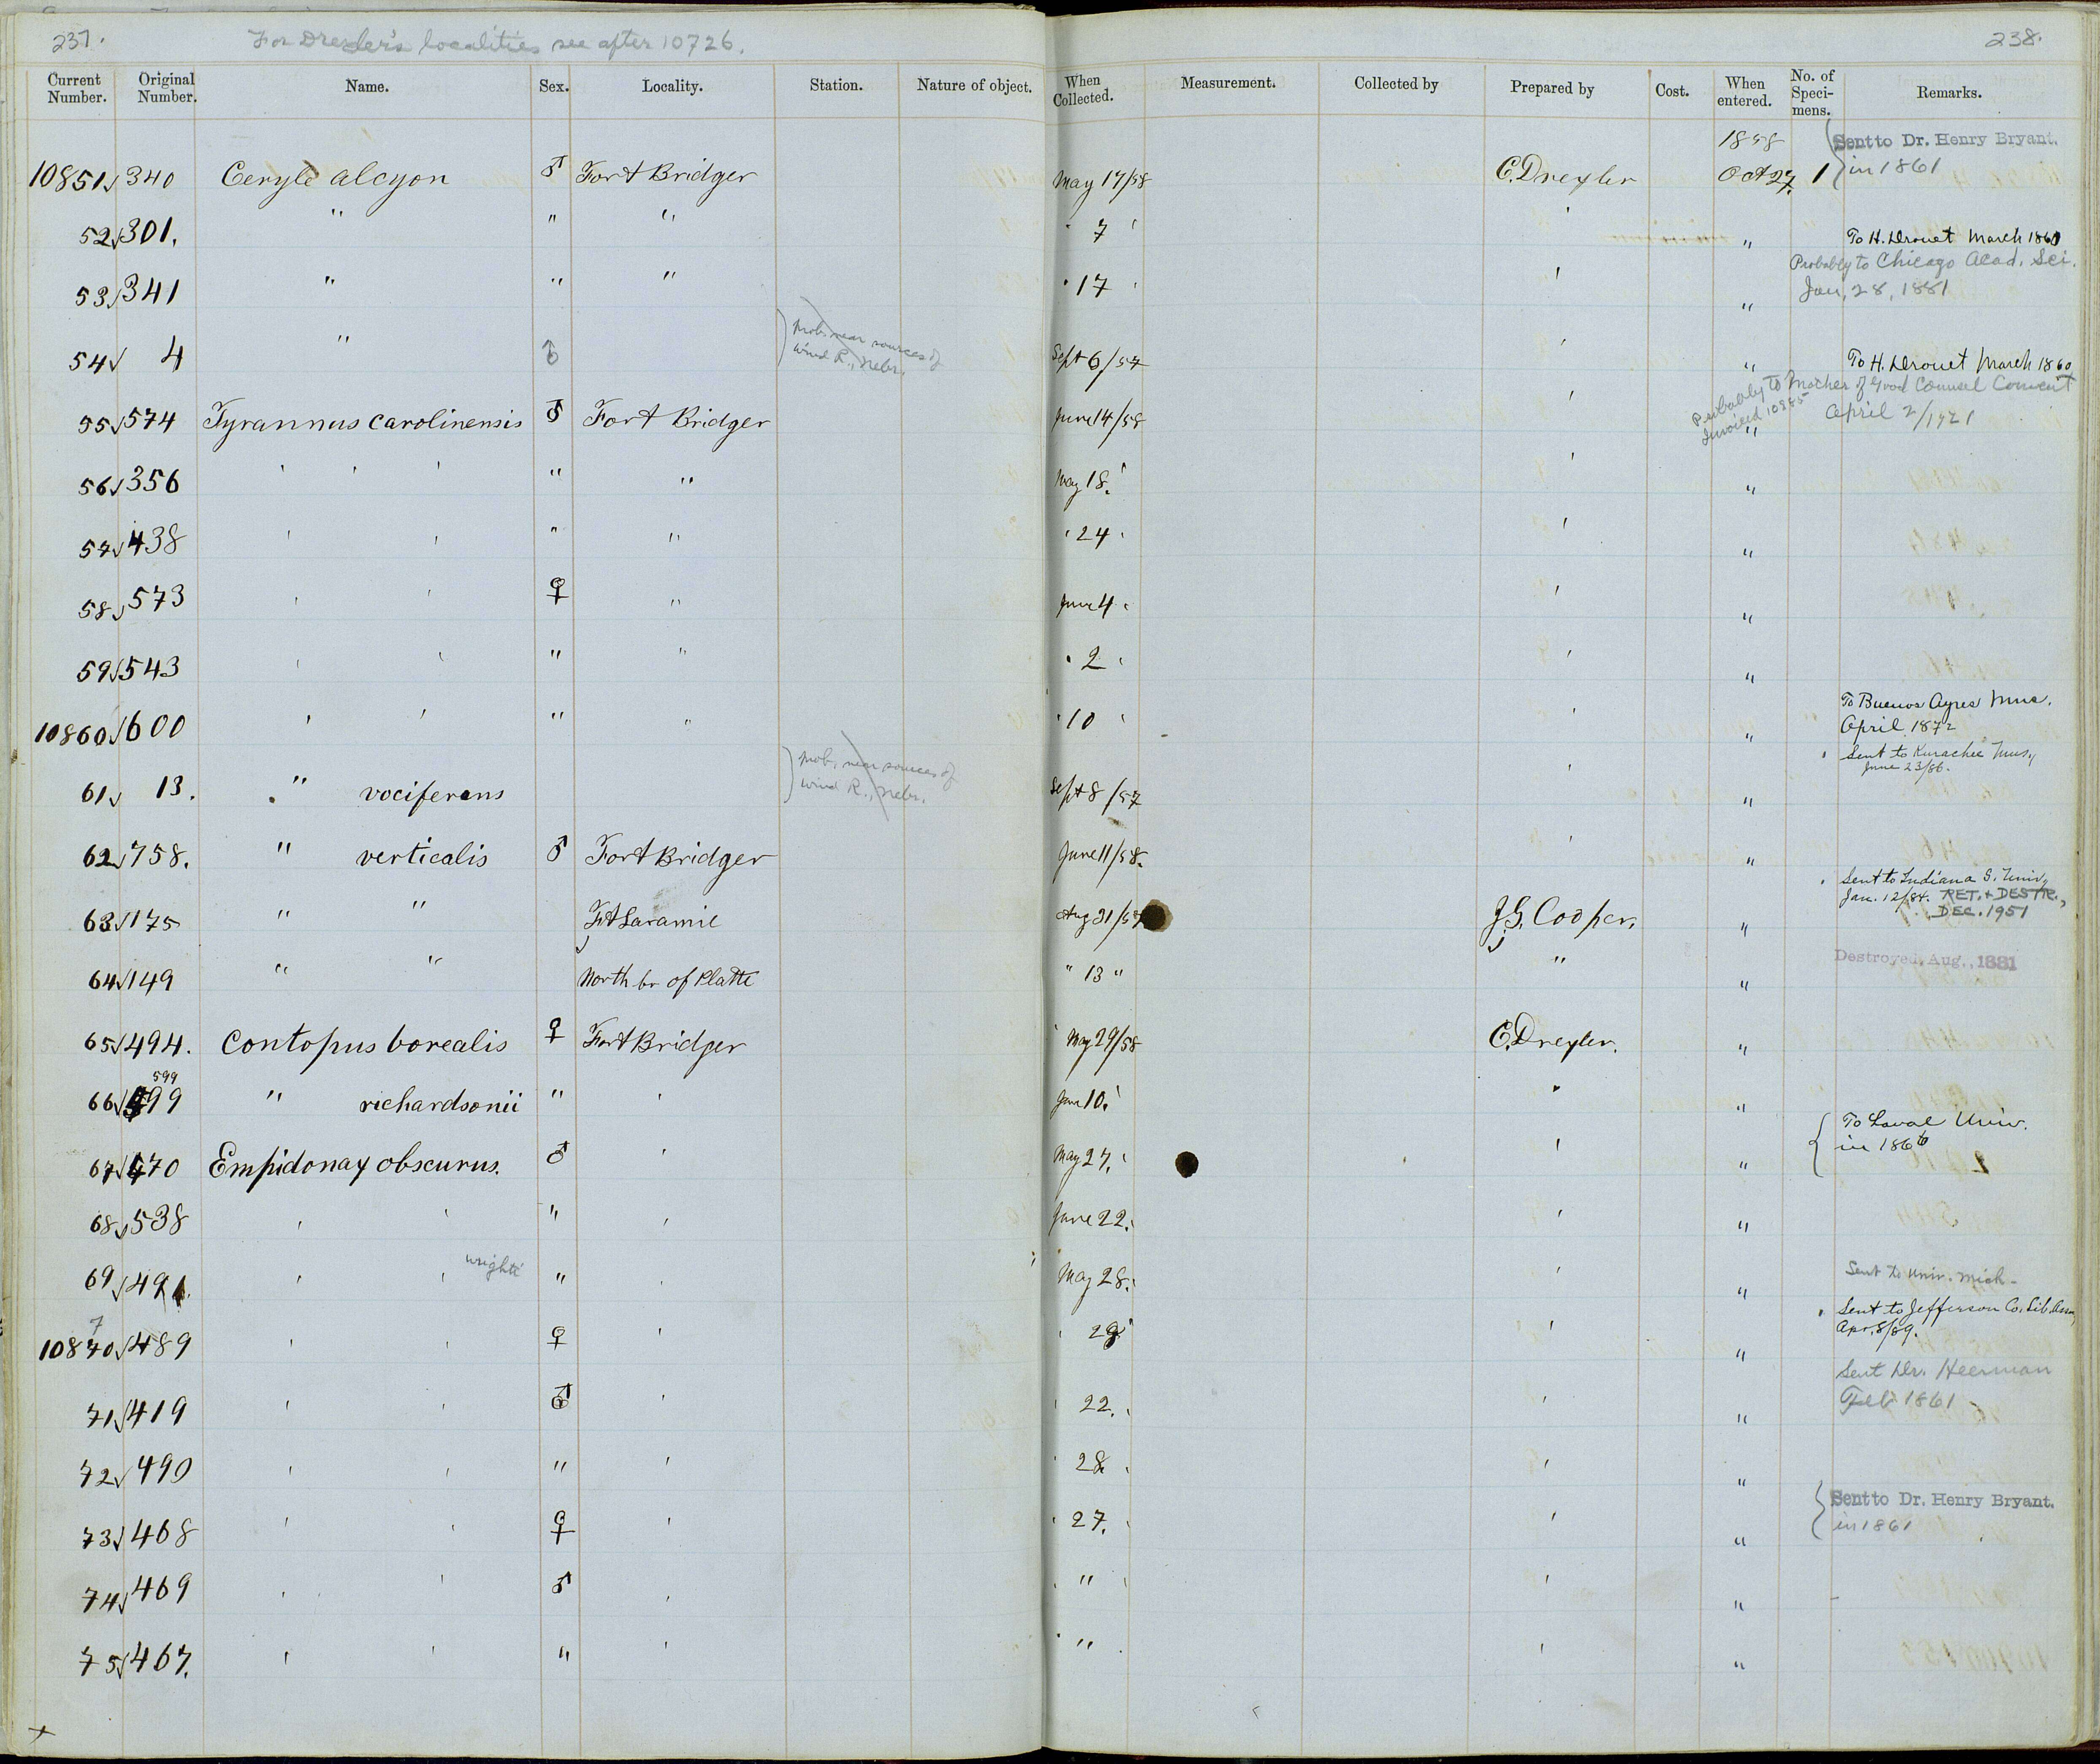 237.
For Drexler's localities see after 10726.
238.
Current Number. Original Number. Name. Sex. Locality. Station. Nature of object. When Collected. Measurement. Collected by Prepared by Cost. When entered. No. of Speci-mens. Remarks.
1858 Sent to Dr. Henry Bryant.
10851 340 Ceryle alcyon ♂ Fort Bridger May 17/58 C. Drexler Oct 27. 1 in 1861
52 301. " " " " 7 ' ' " To H. Drouet March 1860
Probably to Chicago Acad. Sci.
53 341 " " " " 17 ' ' " Jan, 28, 1881
prob. near sources of
Wind R., Nebr.
54 4 " ♂ Sept 6/57 ' " To H. Drouet March 1860
Probably To Mother of Good Counsel Convent
Invoiced 10885 April 2/1921
55 574 Tyrannus carolinensis ♂ Fort Bridger June 14/58 ' "
56 356 ' ' ' " " May 18. ' ' "
57 438 ' ' " " ' 24 ' ' "
58 573 ' ' ♀ " June 4 ' ' "
59 543 ' ' " " ' 2 ' ' "
To Buenos Ayres Mus.
10860 600 ' ' " " ' 10 ' ' " April 1872
prob. near sources of Sent to Kurachee Mus,
Wind R., Nebr. June 23/86.
61 13. " vociferans Sept 8/57 ' "
62 758. " verticalis ♂ Fort Bridger June 11/58. ' "
Sent to Indiana S. Univ,
Jan. 12/84. RET. & DESTR.,
63 175 " " Ft Laramie Aug 31/57 J.G. Cooper. " DEC. 1951
64 149 " " North br of Platte " 13 " " " Destroyed, Aug., 1881
65 494. Contopus borealis ♀ Fort Bridger May 29/58 C. Drexler. "
599
66 599 " richardsonii " ' June 10. ' " "
To Laval Univ.
in 186
67 470 Empidonax obscurus. ♂ ' May 27. ' ' "
68 538 ' ' " ' June 22. ' ' "
wrightii
69 491. ' ' " ' May 28. ' ' " Sent to Univ. Mich.
7 Sent to Jefferson Co. Lib. Assn,
10870 489 ' ' ♀ ' ' 28 ' ' " Apr. 8/89.
Sent Dr. Heerman
71 419 ' ' ♂ ' ' 22. ' ' " Feb 1861
72 490 ' ' " ' ' 28. ' ' "
Sent to Dr. Henry Bryant.
73 468 ' ' ♀ ' ' 27. ' ' " in 1861
74 469 ' ' ♂ ' ' " ' ' "
75 467. ' ' " ' ' " ' "